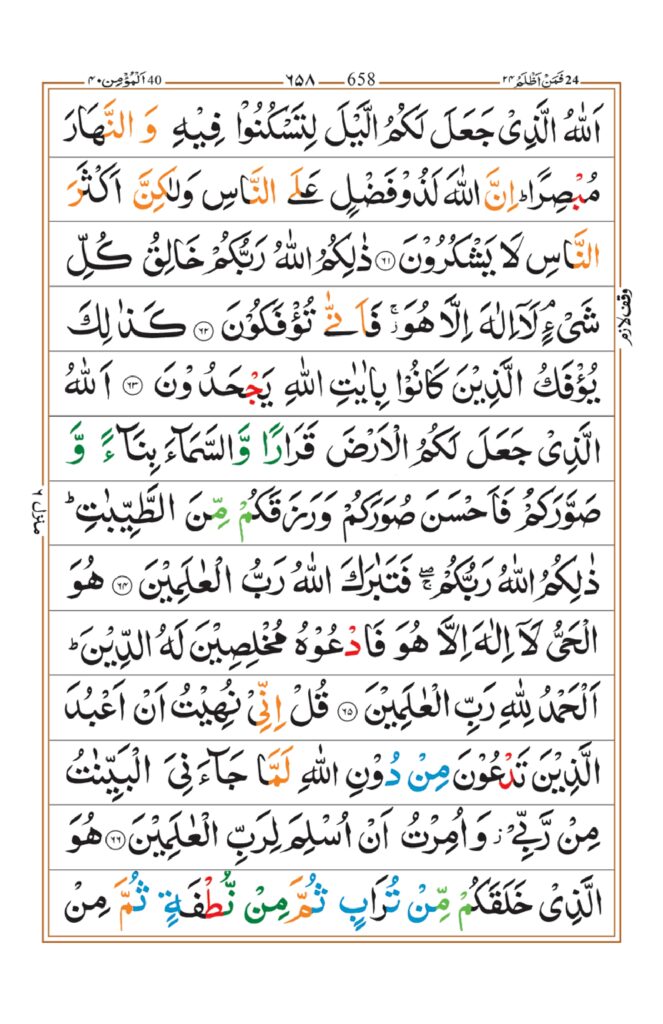 24 فَمَنْ اَظْلَمُ ٢٤ 658 ٦٥٨ 40 اَلْمُؤْمِن ٤٠
اَللّٰهُ الَّذِیْ جَعَلَ لَكُمُ الَّیْلَ لِتَسْكُنُوْا فِیْهِ وَ النَّهَارَ
مُبْصِرًا ؕ اِنَّ اللّٰهَ لَذُوْ فَضْلٍ عَلَی النَّاسِ وَلٰكِنَّ اَكْثَرَ
النَّاسِ لَا یَشْكُرُوْنَ ﴿٦١﴾ ذٰلِكُمُ اللّٰهُ رَبُّكُمْ خَالِقُ كُلِّ
شَیْءٍ ۘ لَاۤ اِلٰهَ اِلَّا هُوَ ۚ فَاَنّٰی تُؤْفَكُوْنَ ﴿٦٢﴾ كَذٰلِكَ
وقف لازم
یُؤْفَكُ الَّذِیْنَ كَانُوْا بِاٰیٰتِ اللّٰهِ یَجْحَدُوْنَ ﴿٦٣﴾ اَللّٰهُ
الَّذِیْ جَعَلَ لَكُمُ الْاَرْضَ قَرَارًا وَّالسَّمَآءَ بِنَآءً وَّ
صَوَّرَكُمْ فَاَحْسَنَ صُوَرَكُمْ وَرَزَقَكُمْ مِّنَ الطَّیِّبٰتِ ؕ
منزل ٦
ذٰلِكُمُ اللّٰهُ رَبُّكُمْ ۖۚ فَتَبٰرَكَ اللّٰهُ رَبُّ الْعٰلَمِیْنَ ﴿٦٤﴾ هُوَ
الْحَیُّ لَاۤ اِلٰهَ اِلَّا هُوَ فَادْعُوْهُ مُخْلِصِیْنَ لَهُ الدِّیْنَ ؕ
اَلْحَمْدُ لِلّٰهِ رَبِّ الْعٰلَمِیْنَ ﴿٦٥﴾ قُلْ اِنِّیْ نُهِیْتُ اَنْ اَعْبُدَ
الَّذِیْنَ تَدْعُوْنَ مِنْ دُوْنِ اللّٰهِ لَمَّا جَآءَنِیَ الْبَیِّنٰتُ
مِنْ رَّبِّیْ ؗ وَاُمِرْتُ اَنْ اُسْلِمَ لِرَبِّ الْعٰلَمِیْنَ ﴿٦٦﴾ هُوَ
الَّذِیْ خَلَقَكُمْ مِّنْ تُرَابٍ ثُمَّ مِنْ نُّطْفَةٍ ثُمَّ مِنْ